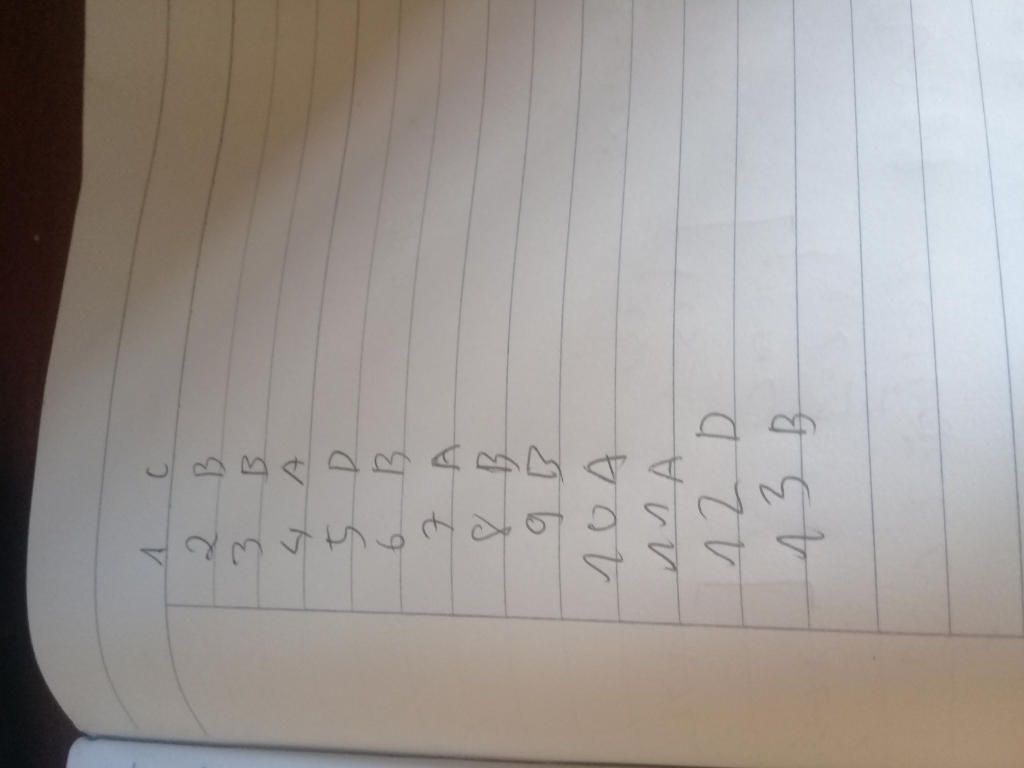 1 C
2 B
3 B
4 A
5 D
6 B
7 A
8 B
9 B
10 A
11 A
12 D
13 B